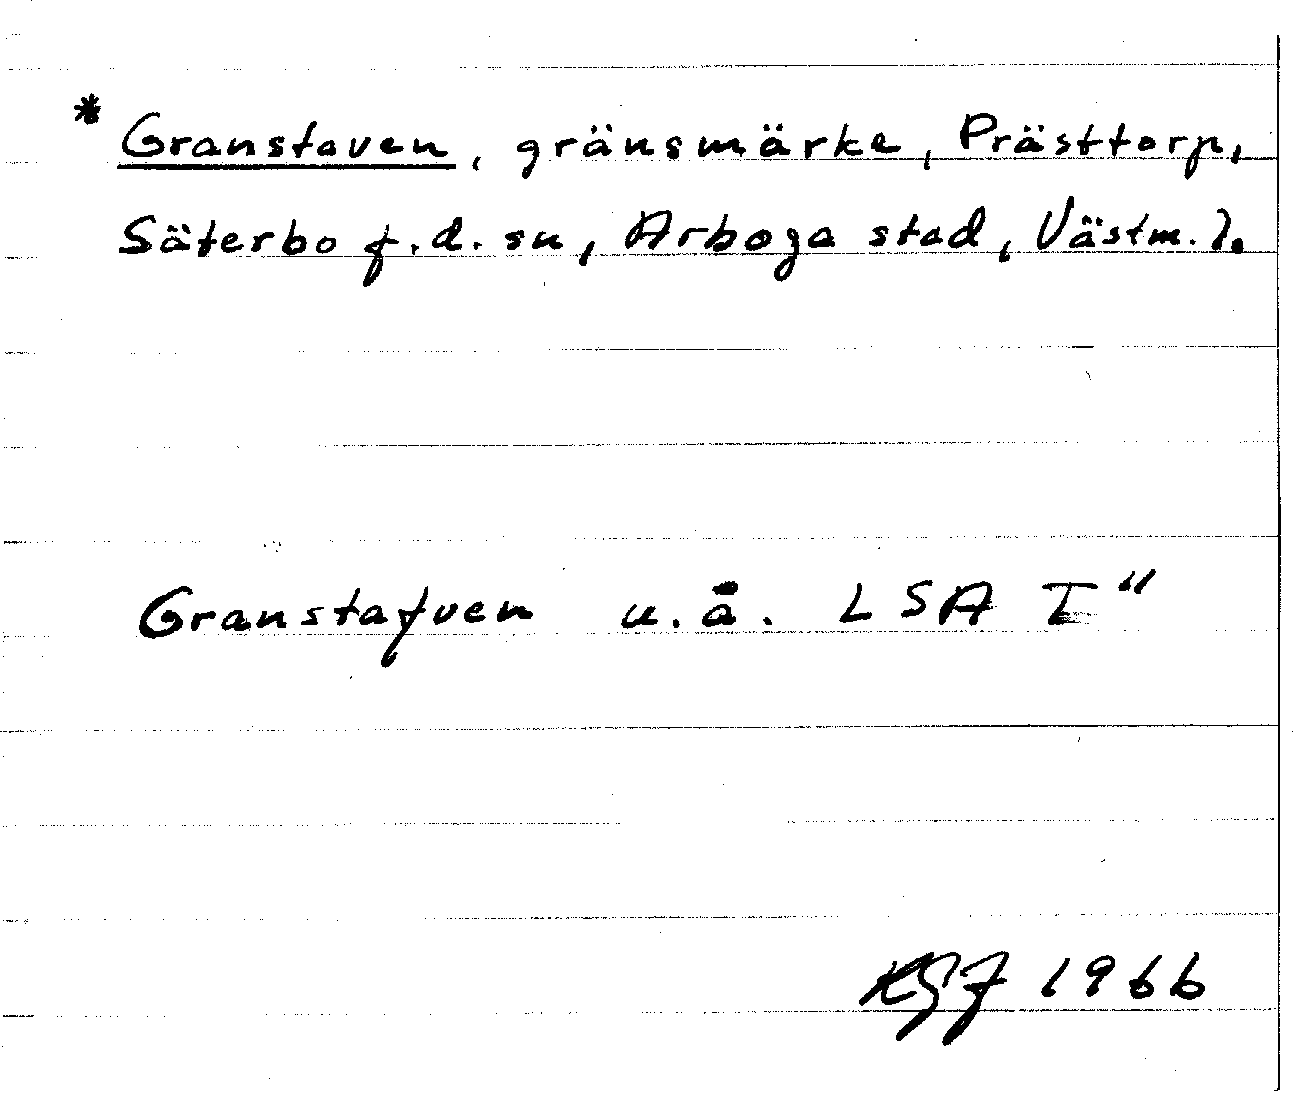 * Granstaven, gränsmärke, Prästtorp,
Säterbo f.d. sn, Arboga stad, Västm. l.
Granstafven u.å. LSA I"
KGJ 1966